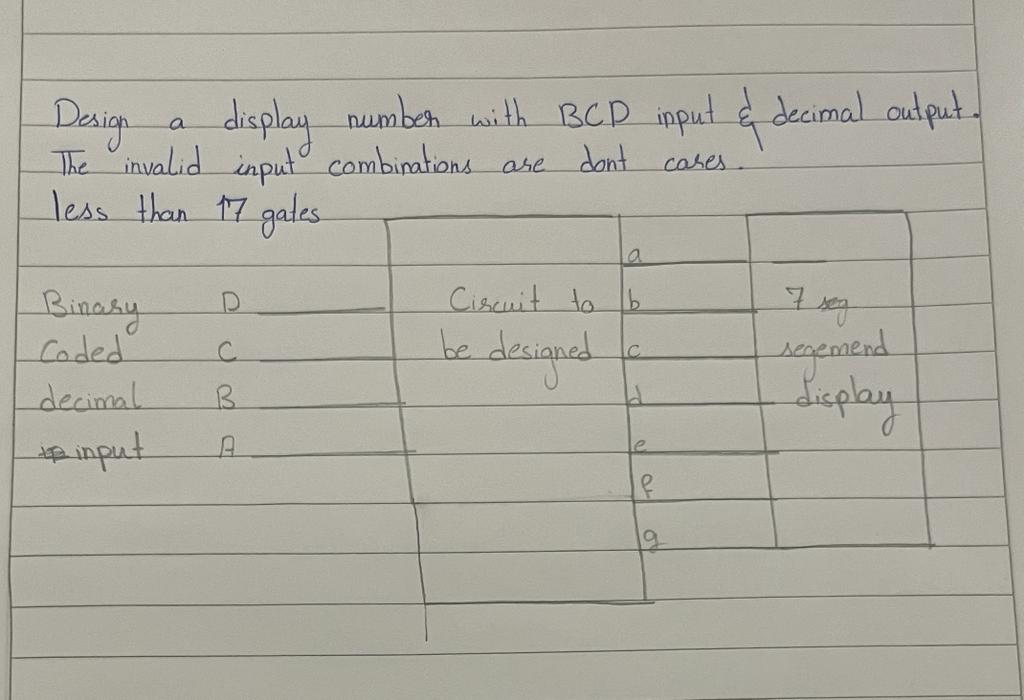 Design a display number with BCD input & decimal output.
The invalid input combinations are dont cases.
less than 17 gates
a
Binary D Circuit to b 7 seg
Coded C be designed c segemend
decimal B d display
input A e
f
g